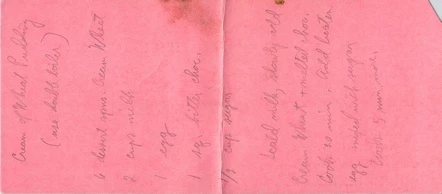 Cream of Wheat Pudding
(use double boiler)
6 dessert spns Cream Wheat
2 cups milk
1 egg
1 sq. bitter choc.
1/3 cup sugar
Scald milk, slowly add
Cream Wheat & melted choc.
Cook 20 min. Add beaten
egg mixed with sugar
Cook 5 min more.